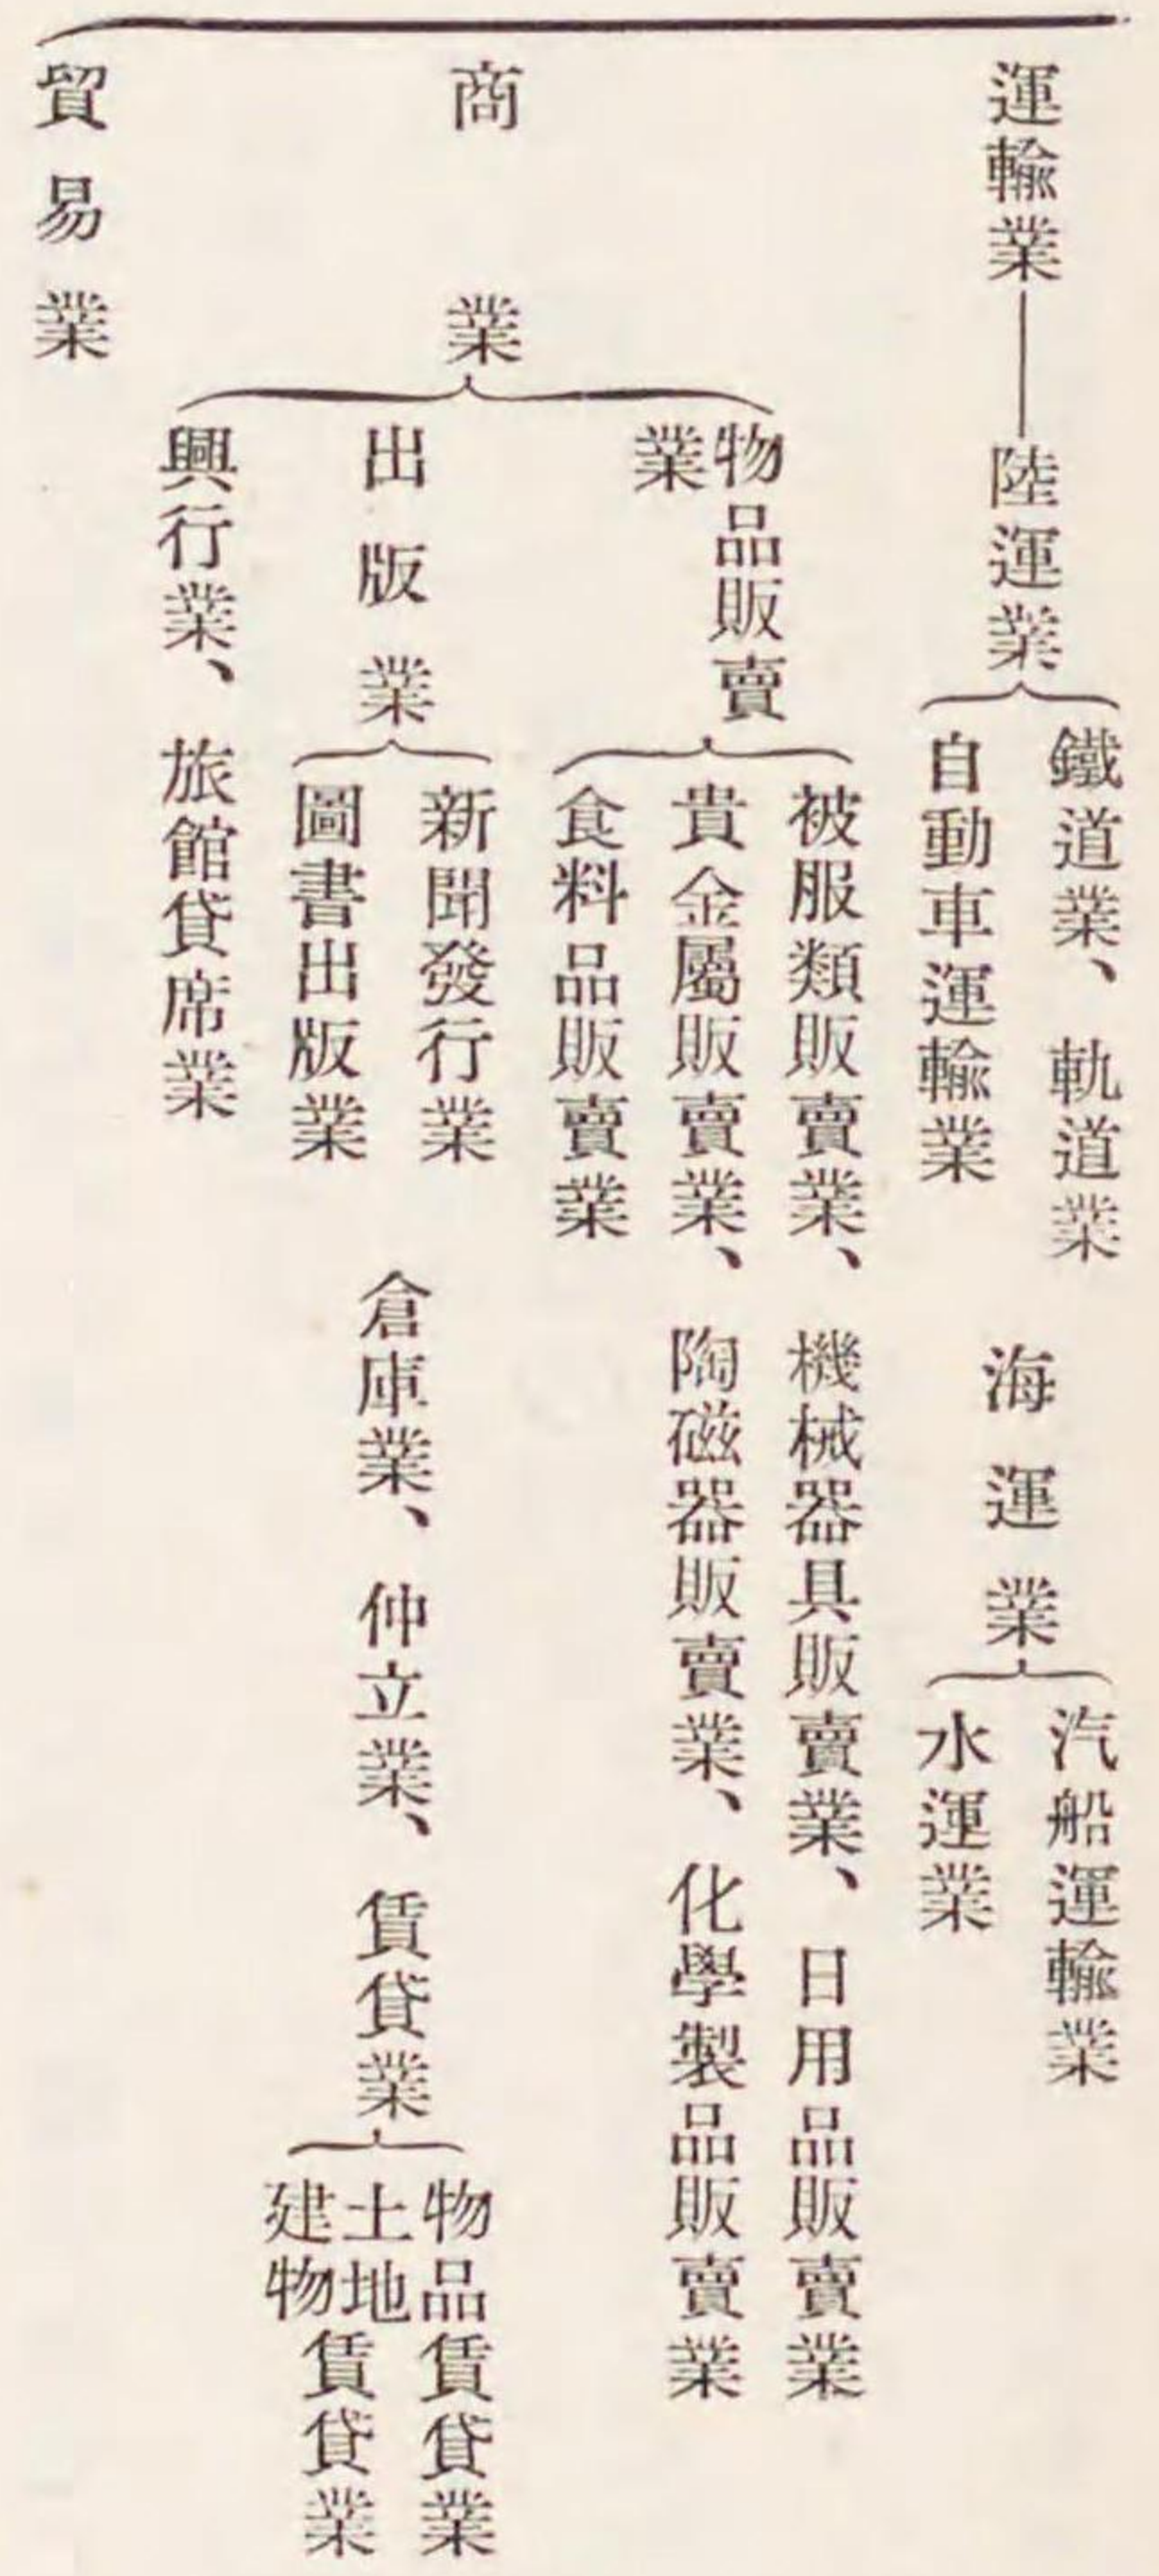 運輸業
陸運業
鐵道業、軌道業
自動車運輸業
海運業
汽船運輸業
水運業
商業
物品販賣
業
被服類販賣業、機械器具販賣業、日用品販賣業
貴金屬販賣業、陶磁器販賣業、化學製品販賣業
食料品販賣業
出版業
新聞發行業
圖書出版業
倉庫業、仲立業、賃貸業
物品賃貸業
土地
建物
賃貸業
興行業、旅館貸席業
貿易業